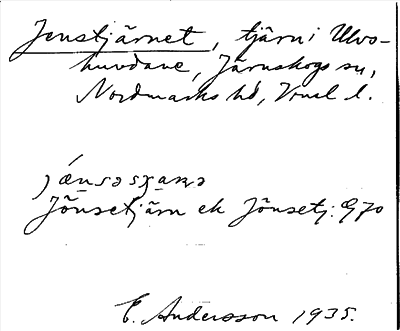 Jenstjärnet, tjärn i Ulvo-
huvdane, Järnskogs sn,
Nordmarks hd, Vrml l.
Jönsetjärn ek Jönsetj: G70
E. Andersson 1935.